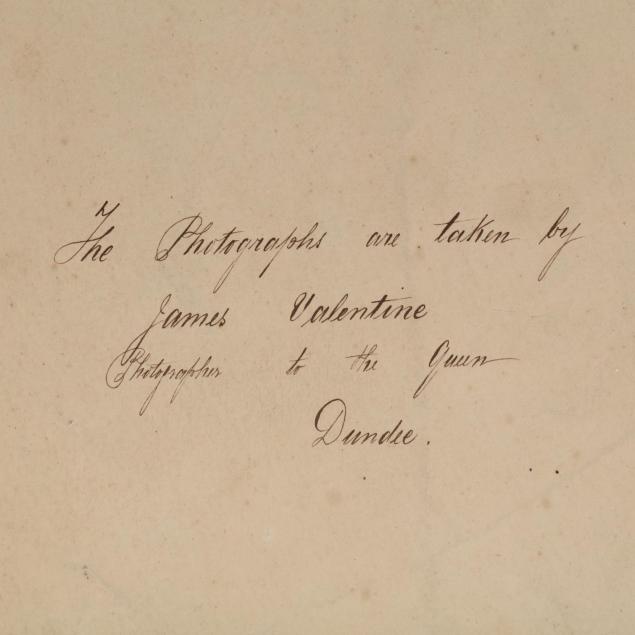 The Photographs are taken by
James Valentine
Photographer to the Queen
Dundee.